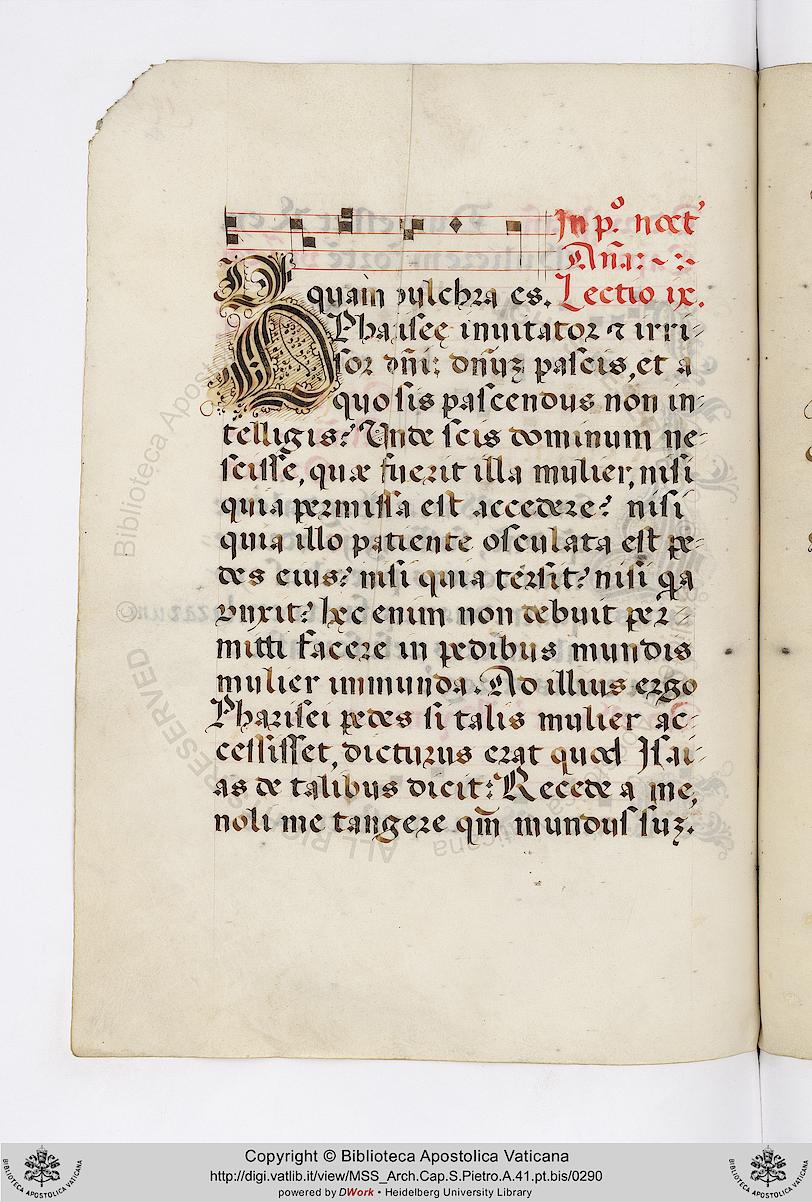 In p.º noct̃
Añа:
O quam pulchra es. Lectio ix.
O Pharisee inuitator ⁊ irri-
sor dñi: dñuꝫ pascis, et a
quo sis pascendus non in-
telligis? Vnde scis dominum ne-
scisse, quæ fuerit illa mulier, nisi
quia permissa est accedere? nisi
quia illo patiente osculata est pe-
des eius? nisi quia tersit? nisi qa
vnxit? hęc enim non debuit per-
mitti facere in pedibus mundis
mulier immunda. Ad illius ergo
Pharisei pedes si talis mulier ac-
cessisset, dicturus erat quod Isai-
as de talibus dicit: Recede a me,
noli me tangere qm̃ mundus suꝫ.
© Biblioteca Apostolica Vaticana
ALL RIGHTS RESERVED
Copyright © Biblioteca Apostolica Vaticana
http://digi.vatlib.it/view/MSS_Arch.Cap.S.Pietro.A.41.pt.bis/0290
powered by DWork • Heidelberg University Library
BIBLIOTECA APOSTOLICA VATICANA
BIBLIOTECA APOSTOLICA VATICANA